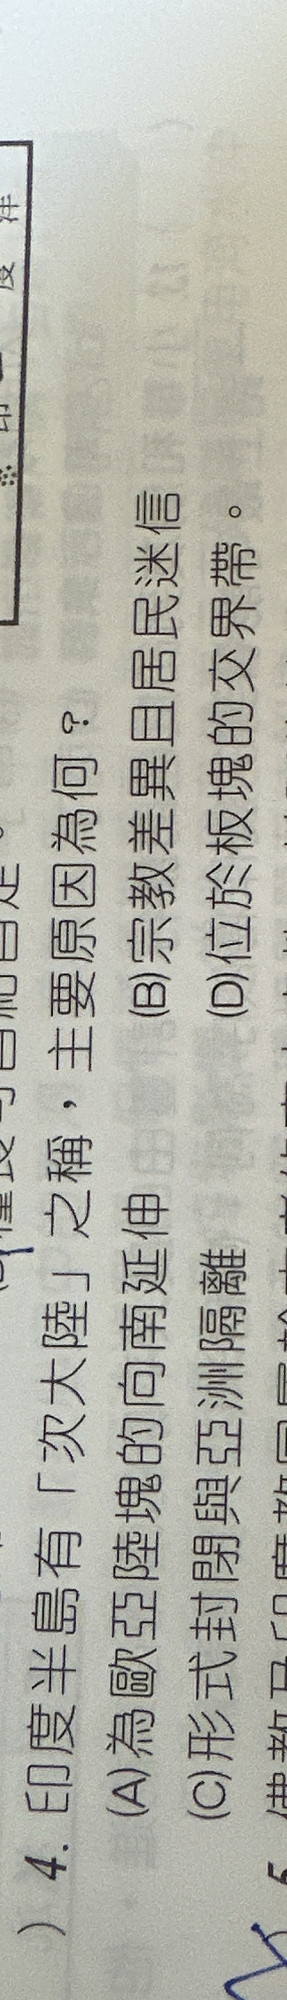 印度洋
) 4. 印度半島有「次大陸」之稱，主要原因為何？
(A)為歐亞陸塊的向南延伸 (B)宗教差異且居民迷信
(C)形式封閉與亞洲隔離 (D)位於板塊的交界帶。